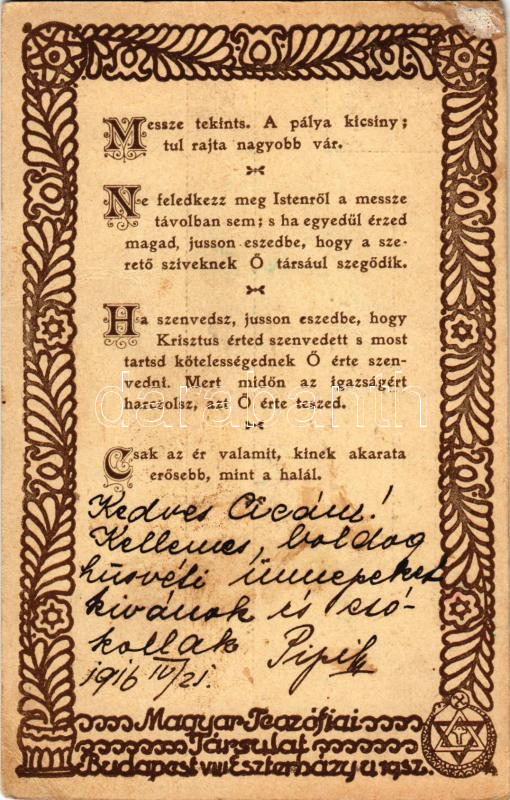 Messze tekints. A pálya kicsiny;
tul rajta nagyobb vár.
Ne feledkezz meg Istenről a messze
távolban sem; s ha egyedül érzed
magad, jusson eszedbe, hogy a sze-
rető sziveknek Ő társául szegődik.
Ha szenvedsz, jusson eszedbe, hogy
Krisztus érted szenvedett s most
tartsd kötelességednek Ő érte szen-
vedni. Mert midőn az igazságért
harczolsz, azt Ő érte teszed.
darabanth
Csak az ér valamit, kinek akarata
erősebb, mint a halál.
Kedves Cicám!
Kellemes, boldog
húsvéti ünnepeket
kivánok és csó-
kollak Pipi
1916 IV/21.
Magyar Teozófiai
Társulat
Budapest VIII Eszterházy u 19 sz.